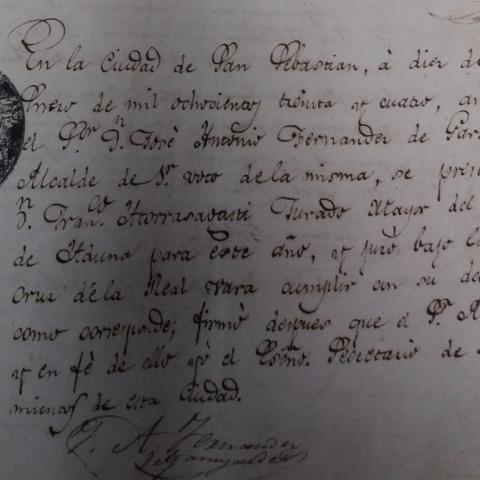 En la Ciudad de San Sebastian, à diez de
Enero de mil ochocientos treinta y cuatro, an
el Sor. Dn. José Antonio Fernandez de Gar
Alcalde de 1r. voto de la misma, se pre
Dn. Franco. Iturrasagasti Jurado Mayor del
de Aduna para este año, y juró bajo la
Cruz de la Real vara cumplir con su de
como corresponde; firmò despues que el Sr. A
y en fè de ello yò el Essno. Secretario de
mientos de esta Ciudad.
J. A. Fernandez